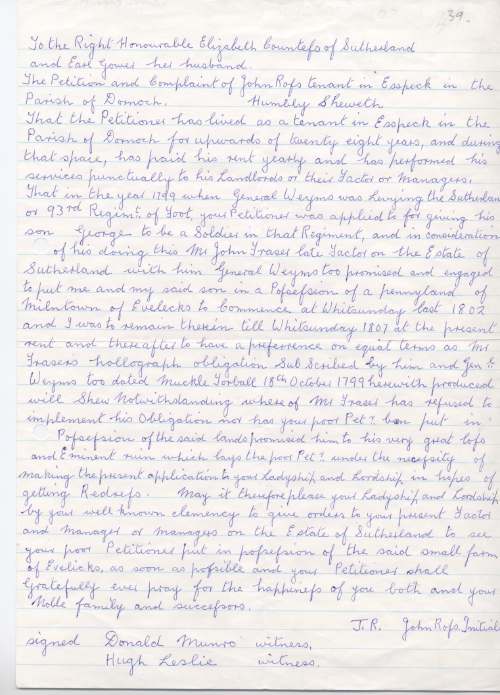 39.
To the Right Honourable Elizabeth Countefs of Sutherland
and Earl Gower her husband.
The Petition and Complaint of John Rofs tenant in Esspeck in the
Parish of Dornoch. Humbly Sheweth
That the Petitioner has lived as a tenant in Esspeck in the
Parish of Dornoch for upwards of twenty eight years, and during
that space, has paid his rent yearly and has performed his
services punctually to his Landlords or their Factor or Managers.
That in the year 1799 when General Weyms was Levying the Sutherlan
or 93rd Regimt. of Foot, your Petitioner was applied to for giving his
son George to be a Soldier in that Regiment, and in consideration
of his doing this Mr John Fraser late Factor on the Estate of
Sutherland with him General Weyms too promised and engaged
to put me and my said son in a Pofsefsion of a pennyland of
Milntown of Evelecks to Commence at Whitsunday last 1802
and I was to remain therein till Whitsunday 1807 at the present
rent and thereafter to have a preferrence on equal terms as Mr
Frasers hollograph obligation Sub Scribed by him and Genl.
Weyms too dated Muckle Torball 18th October 1799 herewith produced
will Shew Notwithstanding where of Mr Fraser has refused to
implement his Obligation nor has your poor Petr. been put in
Pofsefsion of the said lands promised him to his very great lofs
and Eminent ruin which lays the poor Petr. under the necefsity of
making the present application to your Ladyship and Lordship in hopes of
getting Redrefs. May it therefore please your Ladyship and Lordship
by your well known clemency to give orders to your present Factor
and Manager or managers on the Estate of Sutherland to see
your poor Petitioner put in pofsefsion of the said small farm
of Evelicks, as soon as pofsible and your Petitioner shall
Gratefully ever pray for the happinefs of you both and your
Noble family and succefsors.
J.R. John Rofs. Initial
signed Donald Munro witness.
Hugh Leslie witness.